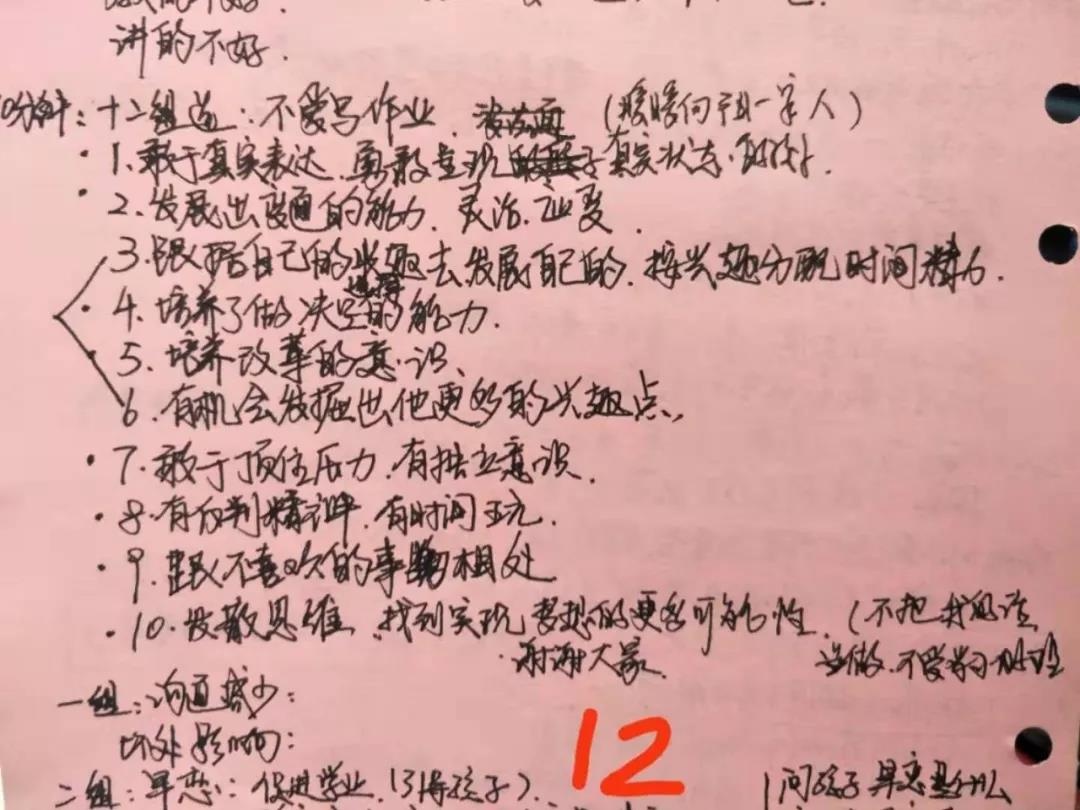 讲的不好.
十二组道：不爱写作业. (瞎瞎何于我一家人)
1. 敢于真实表达. 勇敢呈现真实状态.
2. 发展出变通的能力. 灵活. 应变.
3. 跟据自己的兴趣去发展自己的. 按兴趣分配时间精力.
4. 培养了做决定选择的能力.
5. 培养改革的意识.
6. 有机会发掘出他更多的兴趣点.
7. 敢于顶住压力. 有独立意识.
8. 有批判精神. 有时间玩.
9. 跟不喜欢的事物相处
10. 发散思维. 找到实现梦想的更多可能性. (不把我的话
谢谢大家. 当做. 不爱学习
一组：沟通减少：
坏处影响：
二组：早恋：促进学业. (引导孩子) 问孩子早恋是什么
12